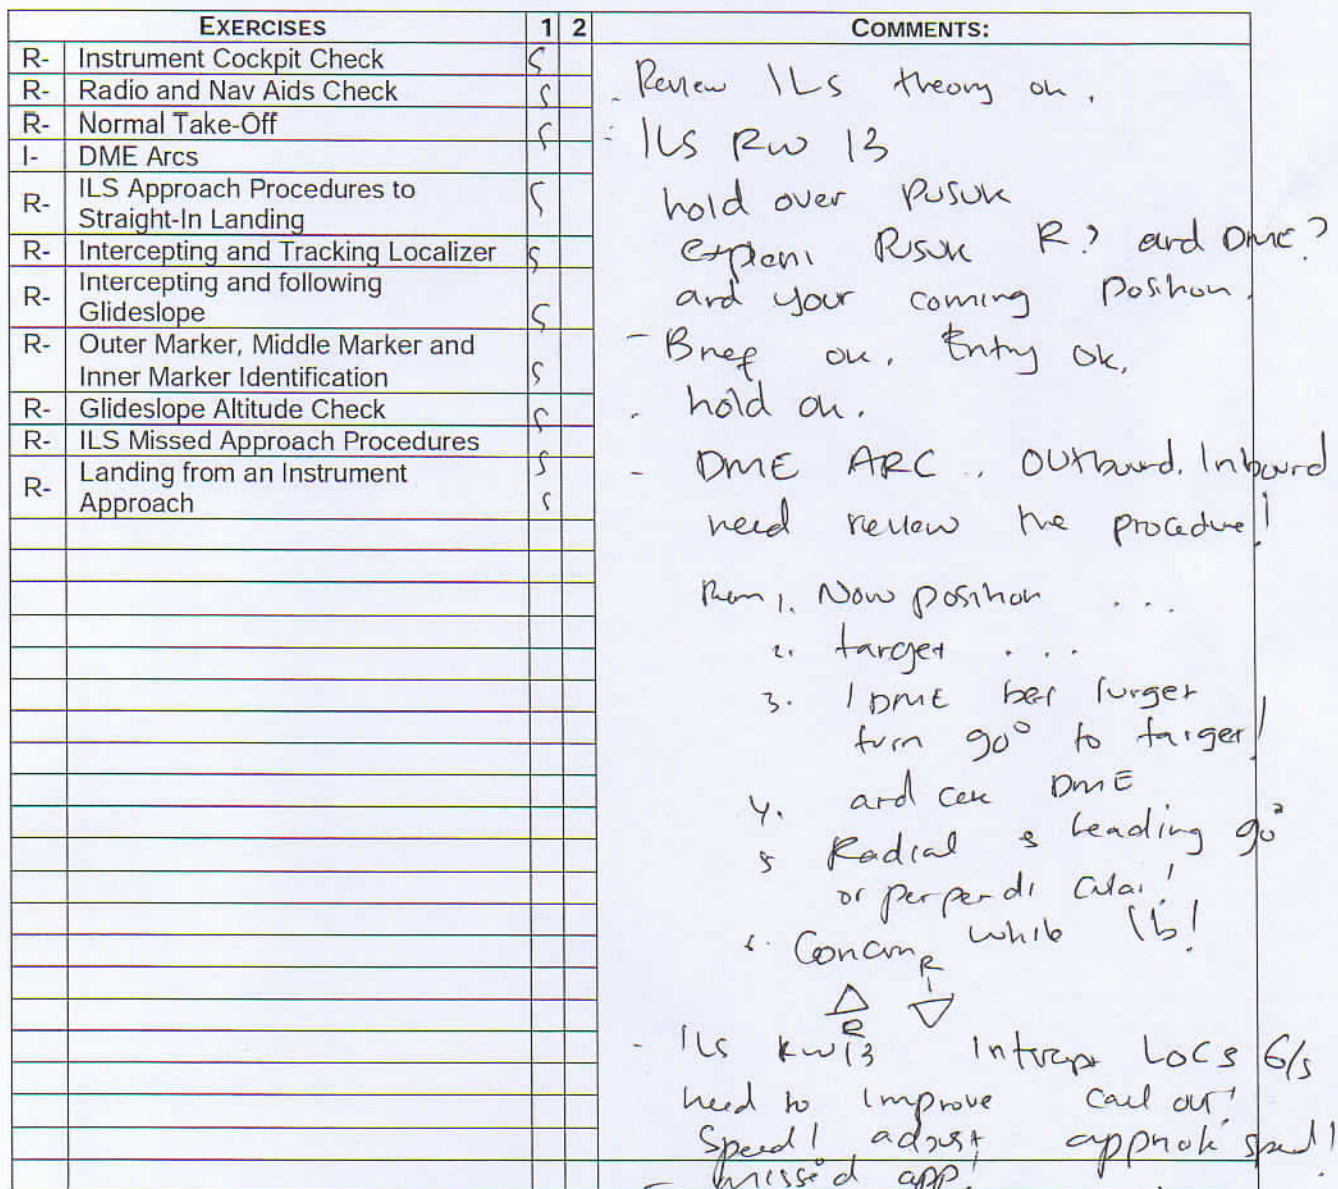 EXERCISES 1 2 COMMENTS:
R- Instrument Cockpit Check S
R- Radio and Nav Aids Check S
R- Normal Take-Off S
I- DME Arcs
R- ILS Approach Procedures to
Straight-In Landing S
R- Intercepting and Tracking Localizer S
R- Intercepting and following
Glideslope S
R- Outer Marker, Middle Marker and
Inner Marker Identification S
R- Glideslope Altitude Check S
R- ILS Missed Approach Procedures S
R- Landing from an Instrument
Approach S
- Review ILS theory ok.
- ILS RW 13
hold over PUSUK
PUSUK R? and DME?
and your coming position.
- Brief ok. Entry ok.
- hold ok.
- DME ARC . Outbound. Inbound
need review the procedure!
1. Now position ...
2. target ...
3. 1 DME
turn 90° to target!
4. and cek DME
5 Radial & heading 90°
or perpendicular!
6. while Ib!
R
R
- ILS RW 13 Intercept LOC & G/S
need to improve call out!
Speed! adjust speed!
- missed app!